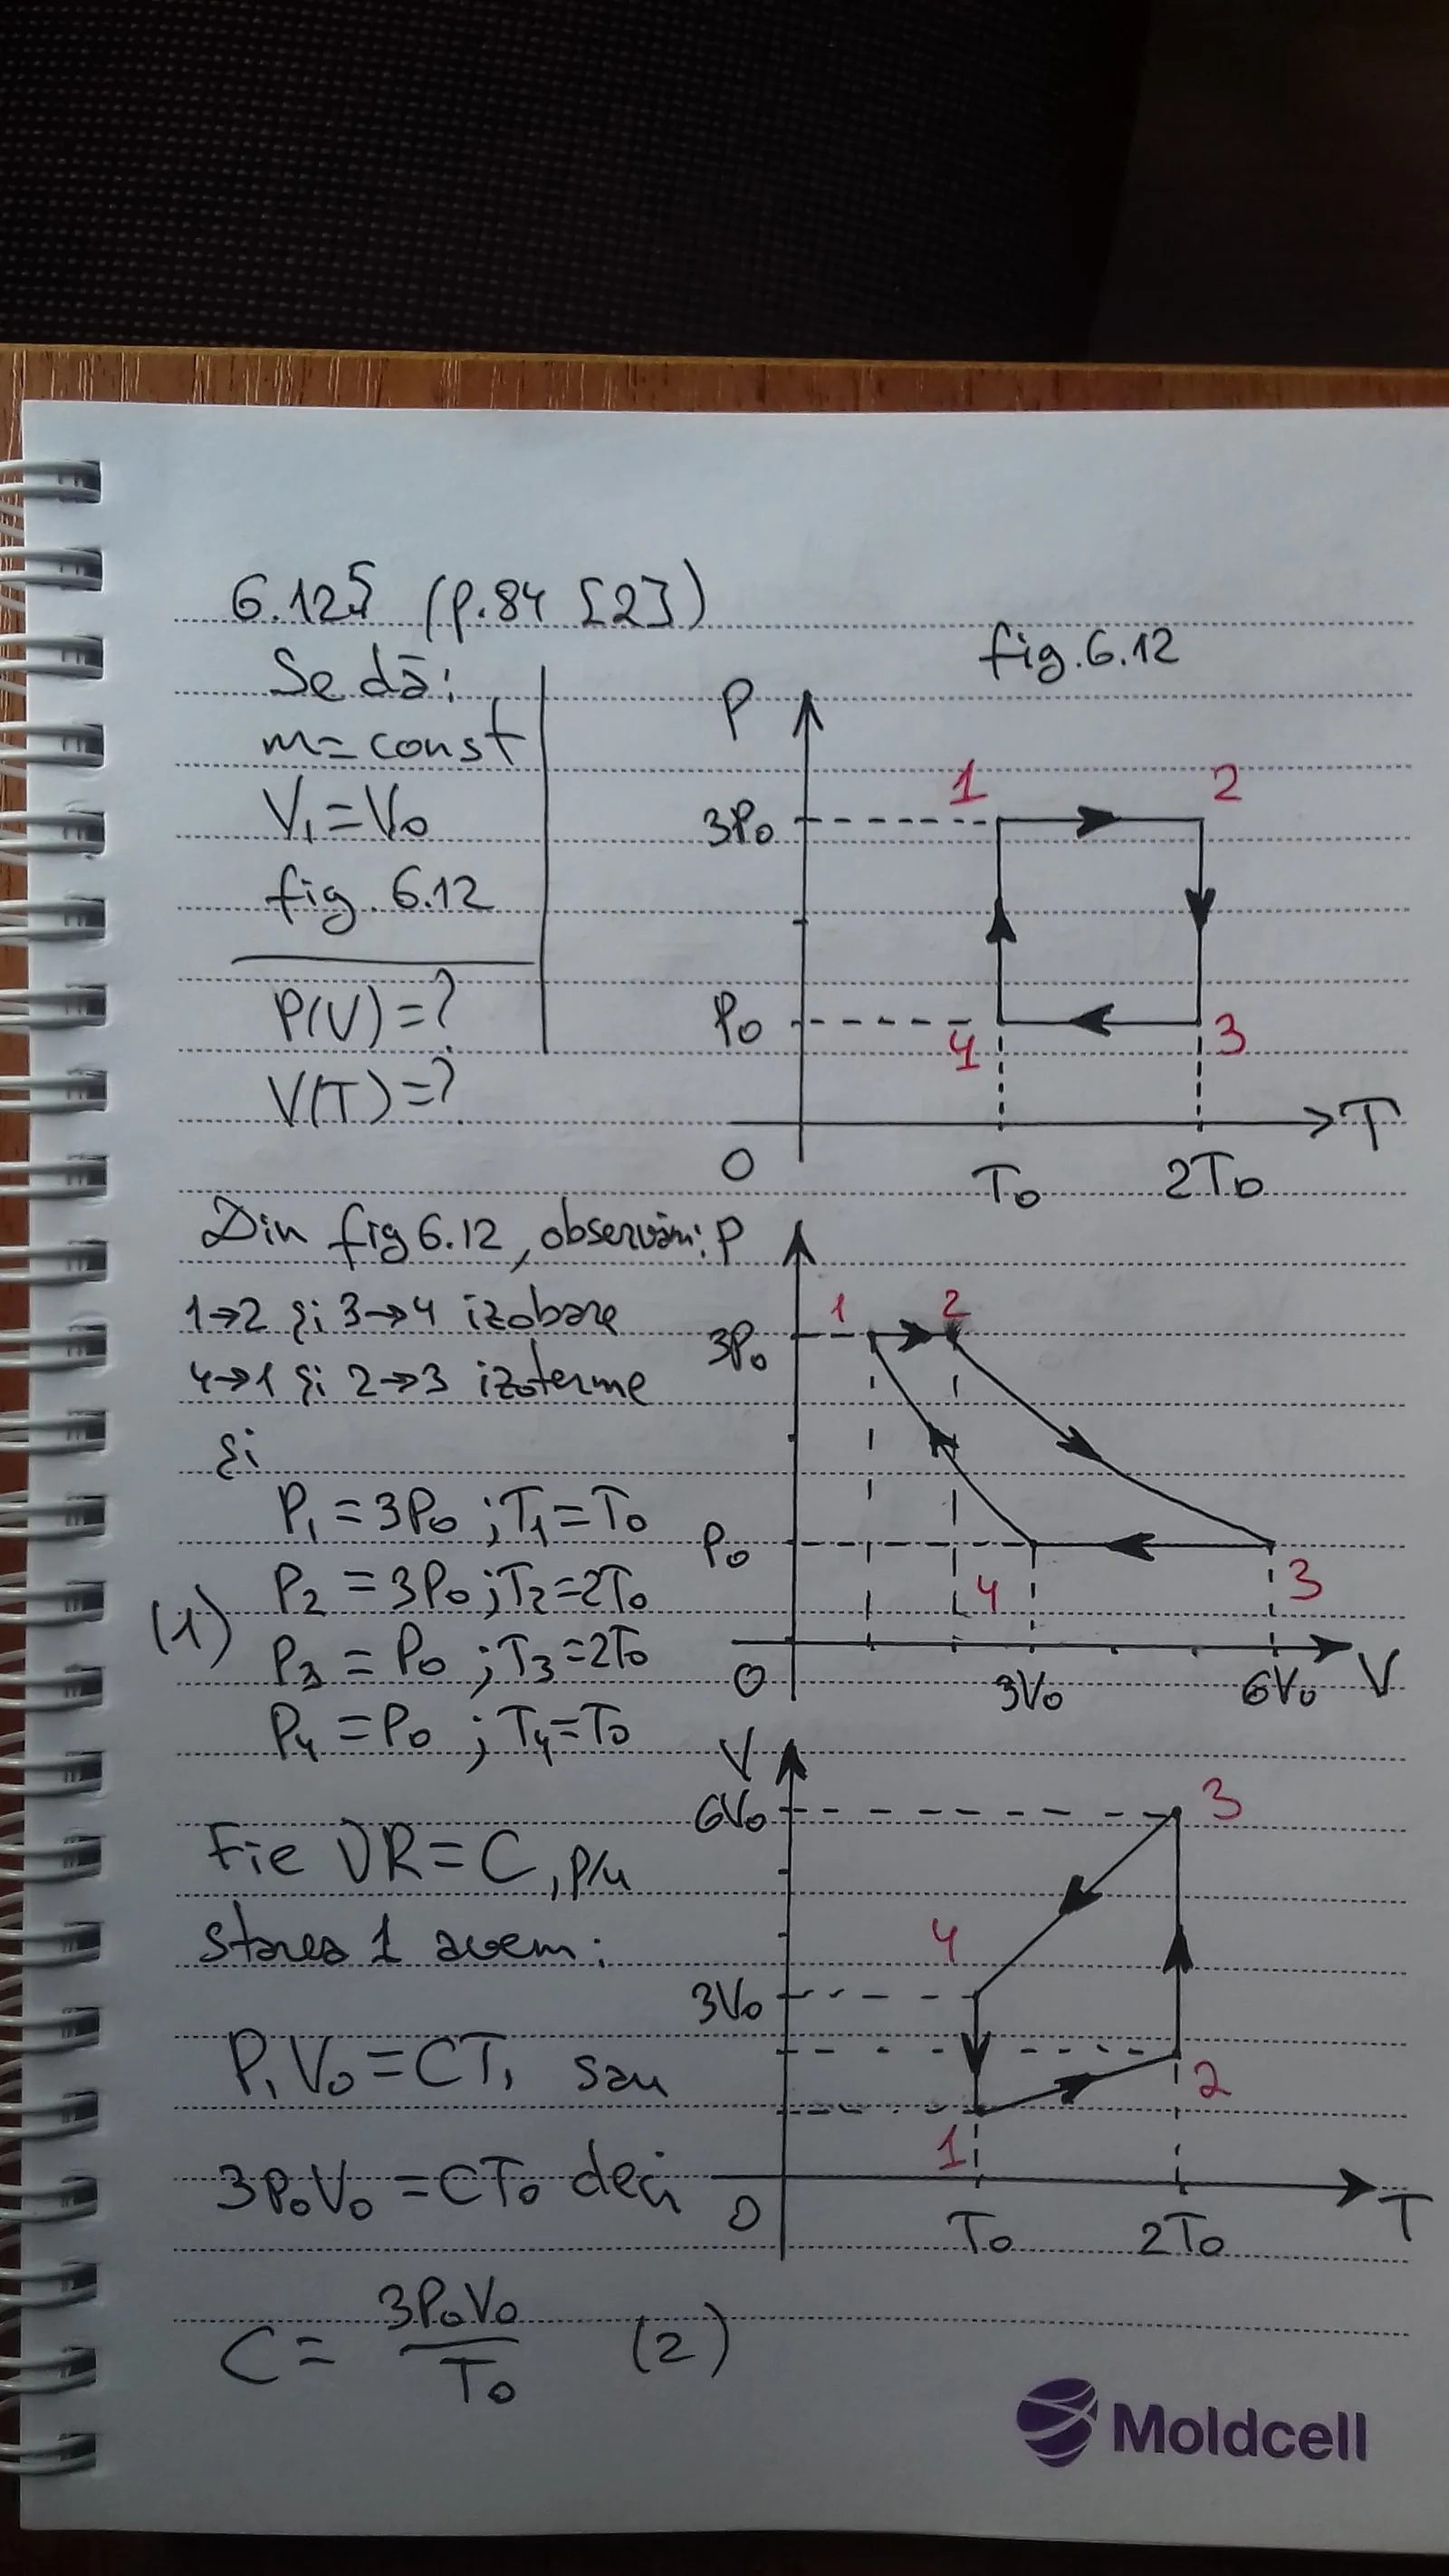 6.125 (p.84 [2])
Se dă:
m=const
V₁=V₀
fig. 6.12
P(V)=?
V(T)=?
fig. 6.12
P
1
2
3P₀
P₀
4
3
O
T₀
2T₀
T
Din fig 6.12, observăm:
1→2 și 3→4 izobare
4→1 și 2→3 izoterme
și
P₁ = 3P₀ ; T₁=T₀
P₂ = 3P₀ ; T₂=2T₀
(1)
P₃ = P₀ ; T₃=2T₀
P₄ = P₀ ; T₄=T₀
P
1
2
3P₀
P₀
4
3
O
3V₀
6V₀
V
Fie νR = C, p/u
starea 1 avem:
P₁V₀=CT₁ sau
3P₀V₀=CT₀ deci
C= 3P₀V₀/T₀ (2)
V
6V₀
3
4
3V₀
2
1
O
T₀
2T₀
T
Moldcell